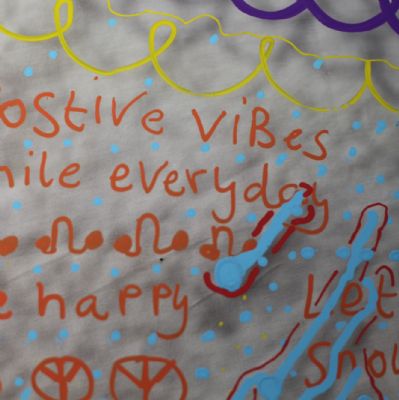 ostive viBes
ile everyday
e happy
Let
Snow